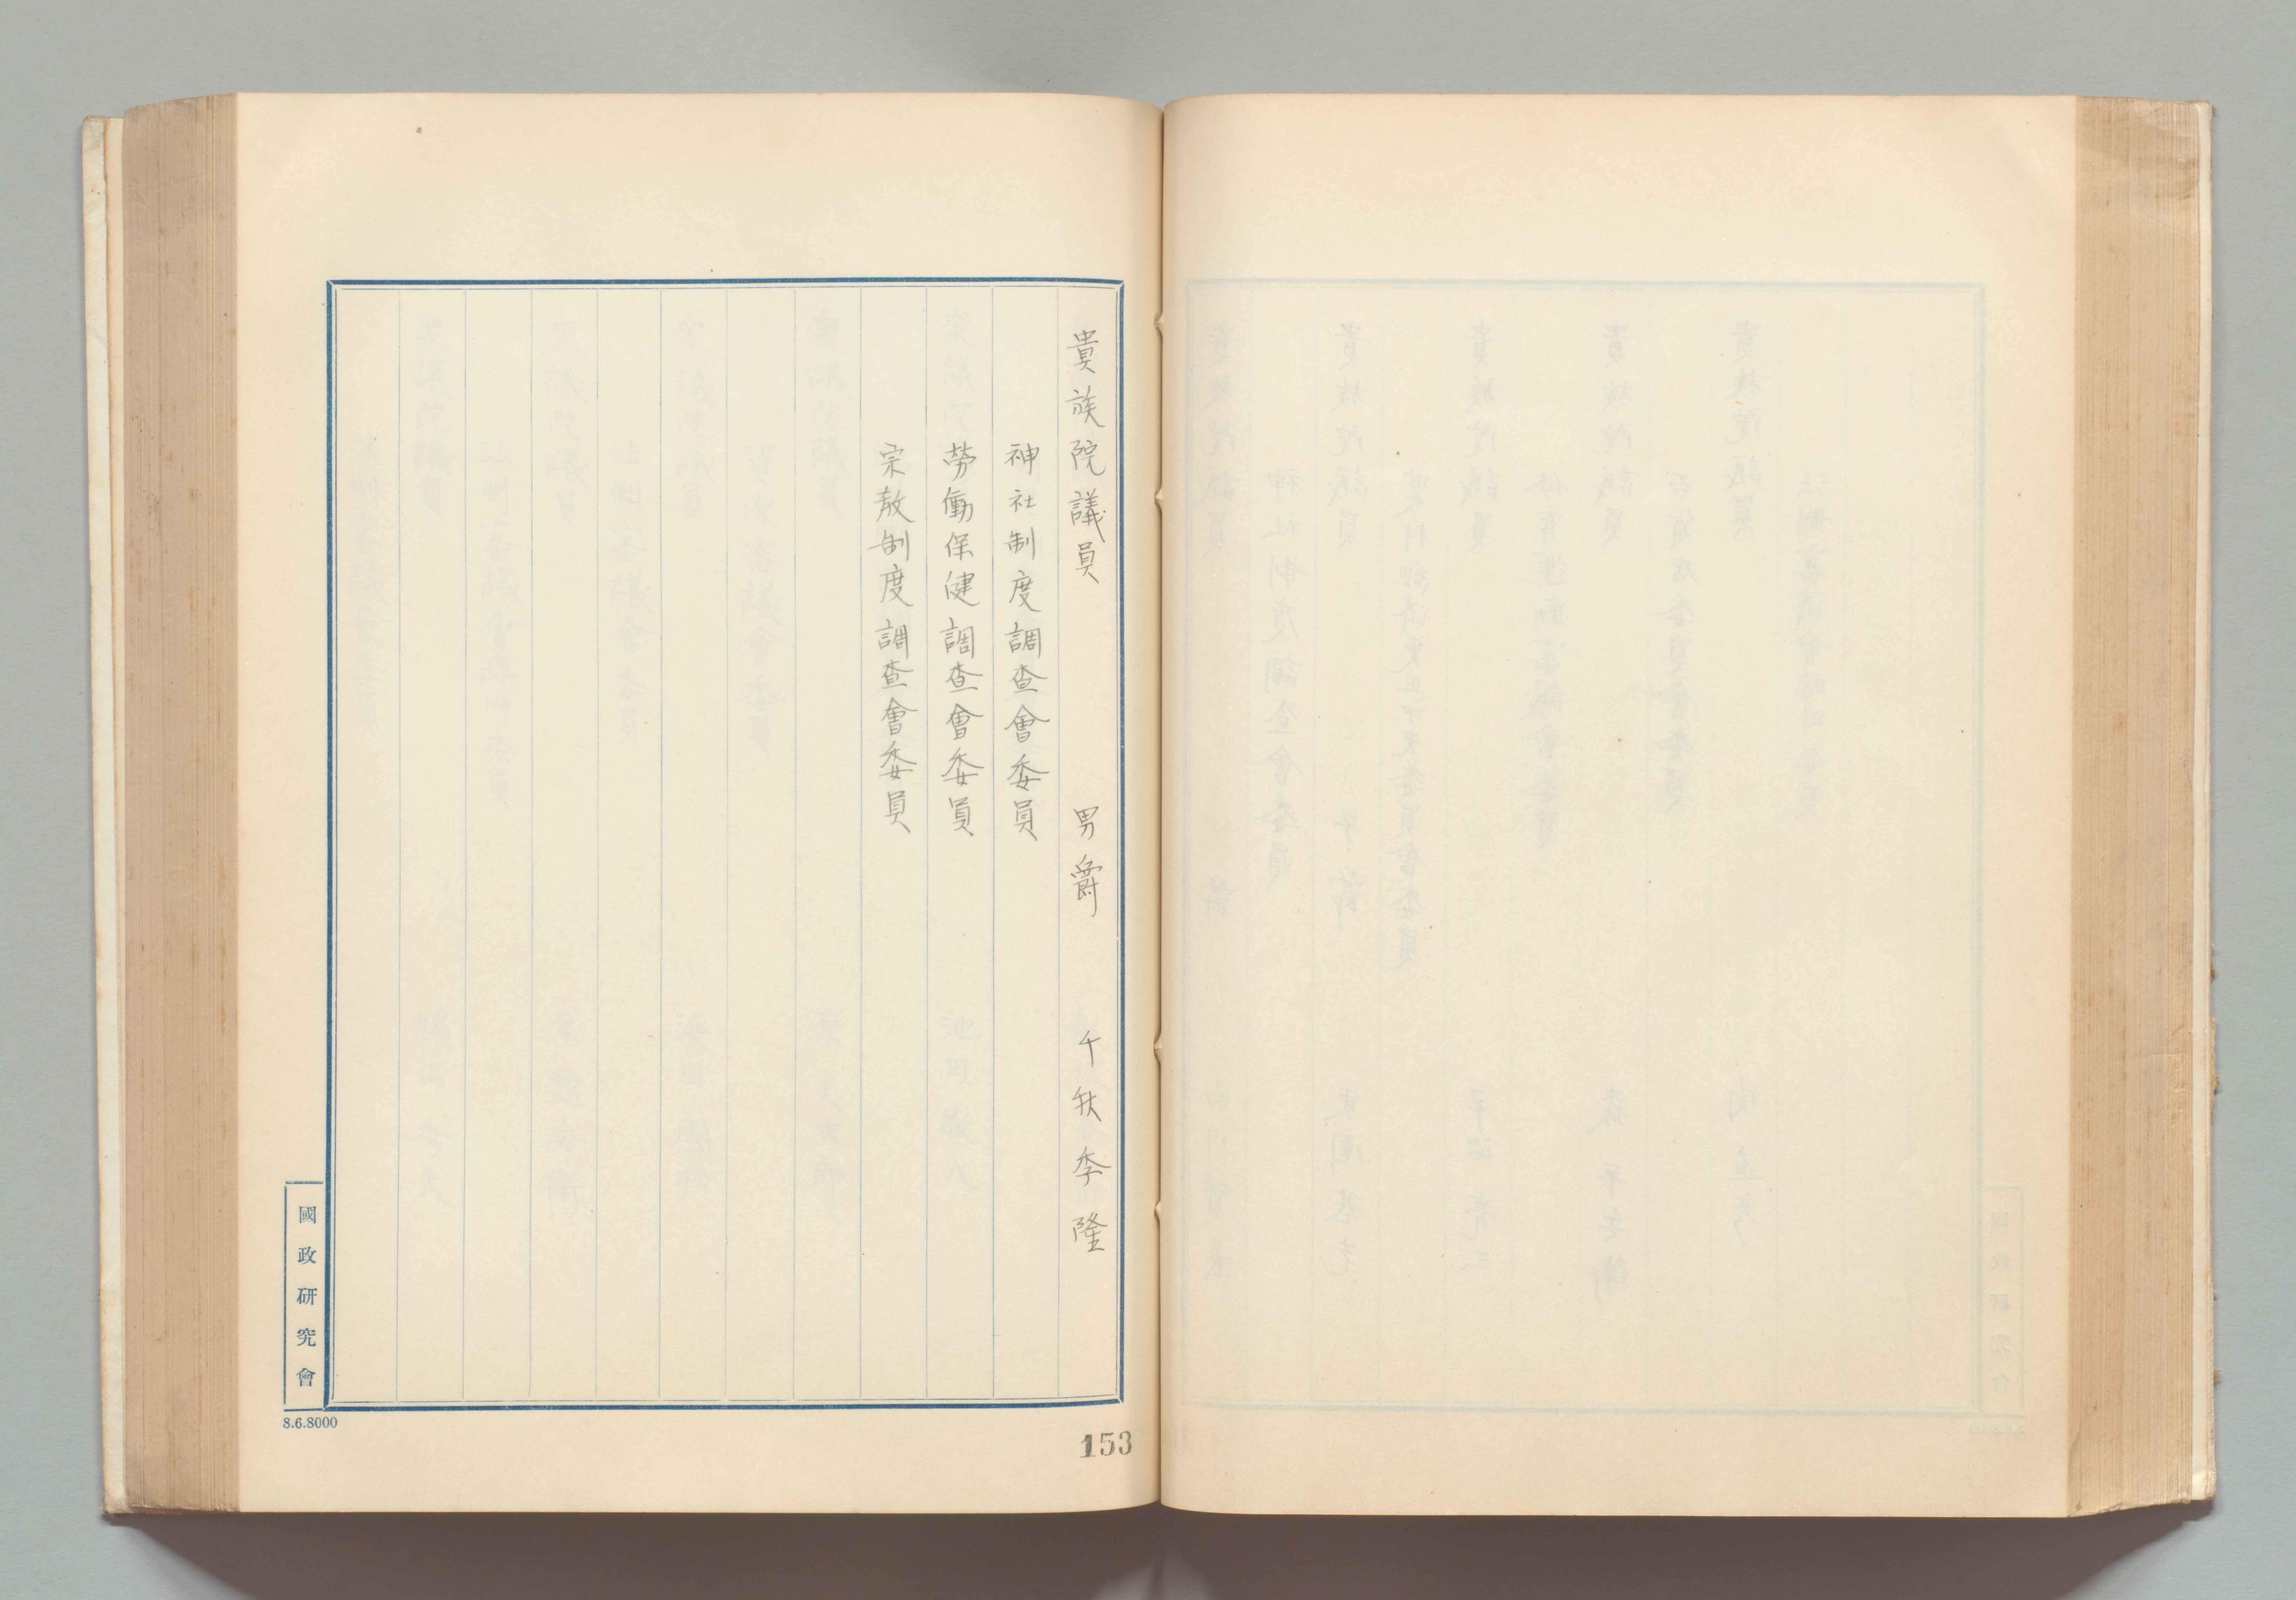 貴族院議員 男爵 千秋季隆
神社制度調査會委員
勞働保健調査會委員
宗教制度調査會委員
國政研究會
8.6.8000
153